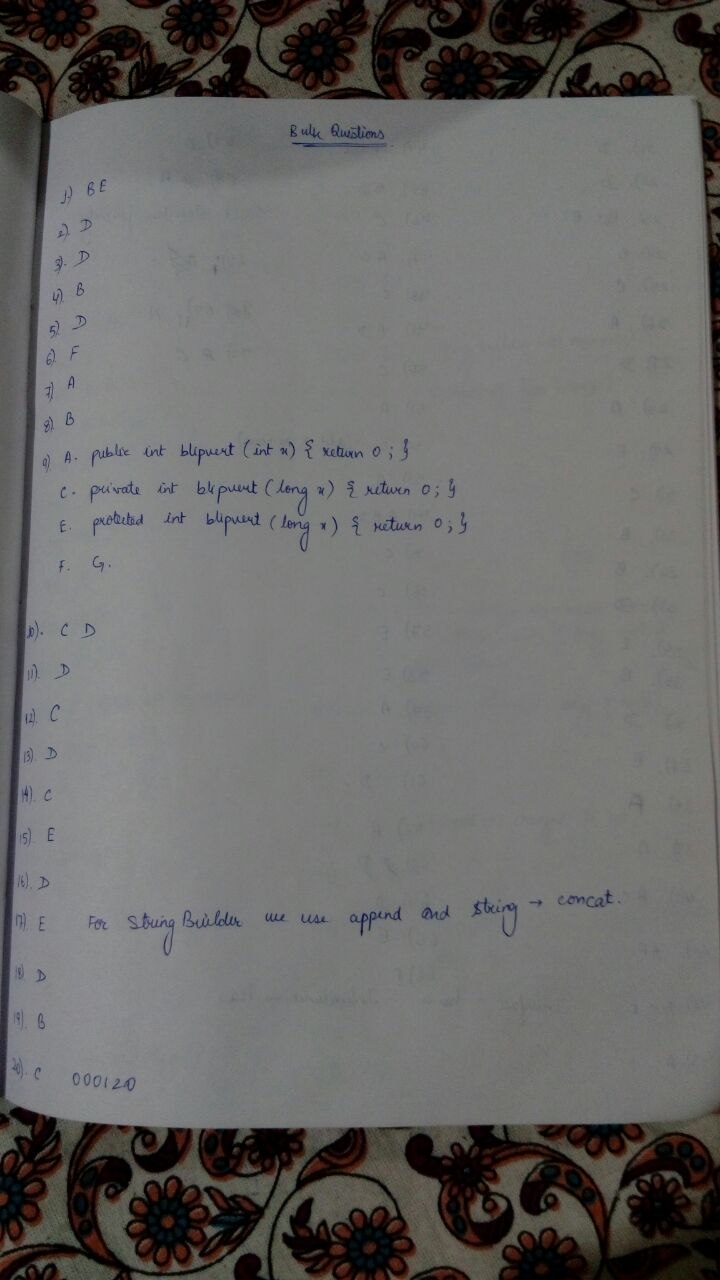 Bulk Questions
1) BE
2). D
3). D
4) B
5) D
6) F
7) A
8). B
9) A. public int blipvert (int x) { return 0 ; }
C. private int blipvert (long x) { return 0 ; }
E. protected int blipvert (long x) { return 0 ; }
F. G.
10). C D
11). D
12) C
13). D
14). C
15). E
16). D
17). E For String Builder we use append and string → concat.
18). D
19). B
20). C 000120